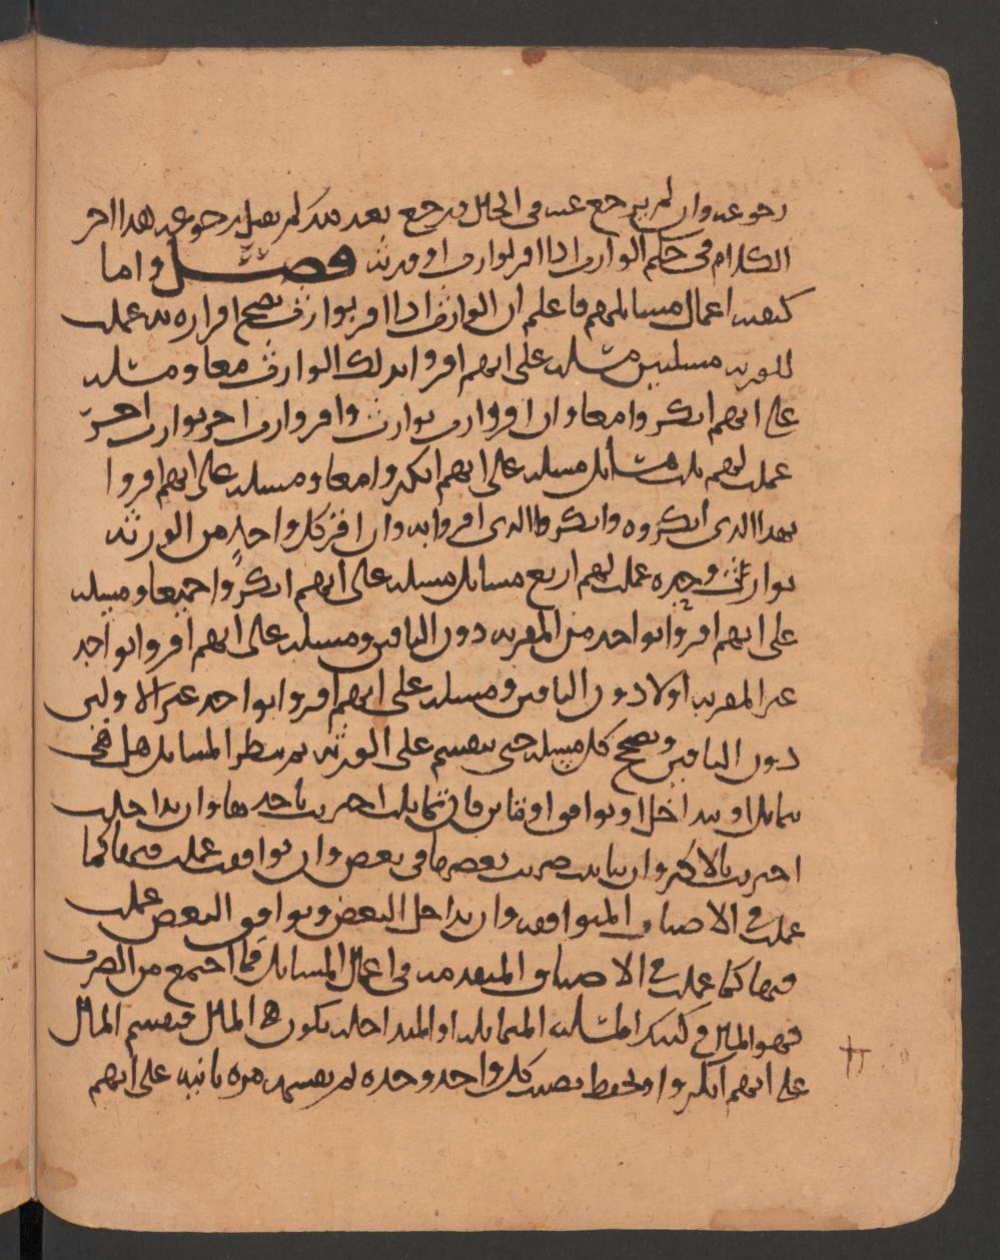 رجوعه وان لم يرجع عنه في الحال ورجع بعد مدة لم يقبل رجوعه هذا اخر
الكلام في حكم الوارث اذا اقر بوارث او ورثة فصل واما
كيفية اعمال مسايلهم فاعلم ان الوارث اذا اقر بوارث يصح اقراره به عملت
للمقر به مسئلتين مسئلة على انهم اقروا بذلك الوارث معا ومسئلة
على انهم انكروا معا وان اقر وارث بوارث واقر وارث اخر بوارث اخر
عملت لهم ثلث مسائل مسئلة على انهم انكروا معا ومسئلة على انهم اقروا
بهذا الذي انكروه وانكروا الذي اقروا به وان اقر كل واحد من الورثة
بوارث وحده عملت لهم اربع مسائل مسئلة على انهم انكروا جميعا ومسئلة
على انهم اقروا بواحد من المقر به دون الباقين ومسئلة على انهم اقروا بواحد
غير المقر به اولا دون الباقين ومسئلة على انهم اقروا بواحد غير الاولين
دون الباقين وتصح كل مسئلة حتى تنقسم على الورثة ثم تنظر المسائل هل هي
تماثل او تداخل او توافق او تباين فان تماثلت اجتزيت باحدها وان تداخلت
اجتزيت بالاكثر وان تباينت ضربت بعضها في بعض وان توافقت عملت فيها كما
عملت في الاصناف المتوافقة وان تداخل البعض وتوافق البعض عملت
فيها كما عملت في الاصناف المتقدمة في اعمال المسائل فما اجتمع من الضرب
فهو المال المسئلة المتماثلة او المتداخلة تكون هي المال فيقسم المال
على انهم انكروا وتحفظ نصيب كل واحد وحده ثم تقسمه مرة ثانية على انهم